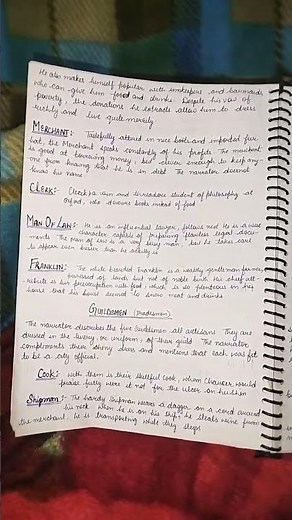 He also makes himself popular with innkeepers and barmaids
who can give him food and drinks. Despite his vow of
poverty, the donations he extracts allow him to dress
richly and live quite merrily
MERCHANT: Tastefully attired in nice boots and imported fur
hat, the Merchant speaks constantly of his profits. The merchant
is good at borrowing money, but clever enough to keep any-
one from knowing that he is in debt. The narrator doesnot
knows his name.
CLERK:- Clerk is an and threadbare student of philosophy at
oxford, who devours books instead of food
MAN OF LAW: He is an influential lawyer, follows next. He is a wise
character capable of preparing flawless legal docu-
ments. The man of law is a very busy man but he takes care
to appear even busier than he actually is
FRANKLIN: The white bearded Franklin is a wealthy gentleman farmer,
possessed of lands but not of noble birth. His chief att-
ribute is his preoccupation with food, which is so plenteous in his
house that his house seemed to snow meat and drinks
GUILDSMEN (tradesmen)
The narrator describes the five Guildsmen all artisans. They are
dressed in the livery, or uniform, of their guild. The narrator
compliments their shiny dress and mentions that each was fit
to be a city official.
COOK:- With them is their skillful cook, whom Chaucer would
praise fully were it not for the ulcer on his shin
SHIPMAN:- The hardy Shipman wears a dagger on a cord around
his neck. When he is on his trip, he steals wine from
the merchant he is transporting while they sleeps